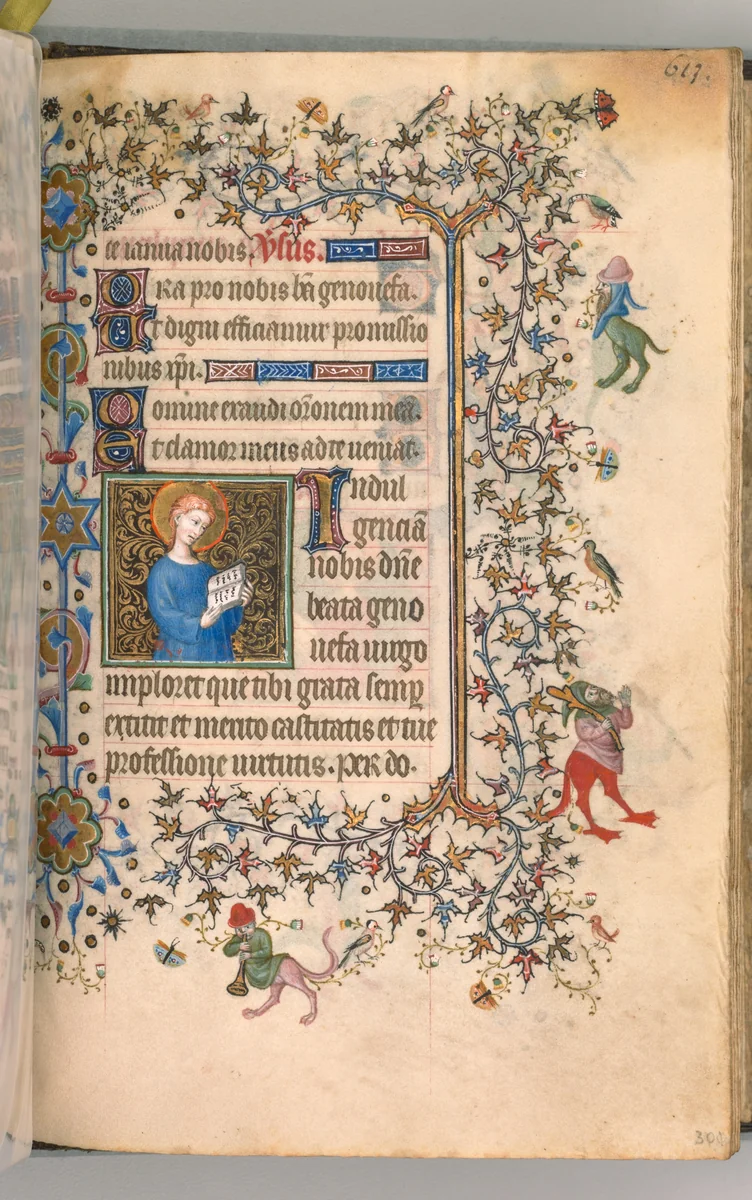 617.
te ianua nobis. V̓sus.
Ora pro nobis bā genouefa.
Et digni efficiamur promissio
nibus xp̄i.
Domine exaudi or̄onem meā.
Et clamor meus ad te ueniat.
Indul
genciā
nobis dn̄e
beata geno
uefa uirgo
imploret que tibi grata semp̱
extitit et merito castitatis et tue
professione uirtutis. per do.